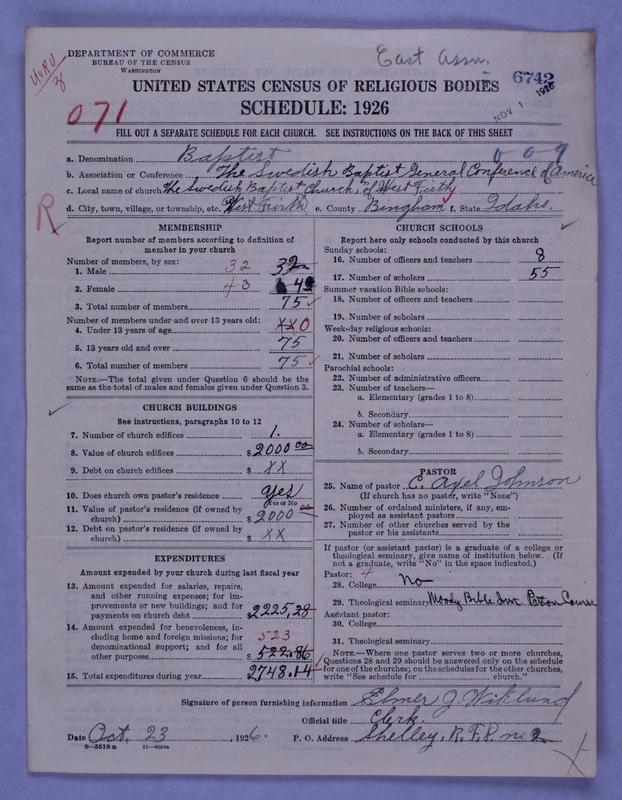 DEPARTMENT OF COMMERCE
BUREAU OF THE CENSUS
WASHINGTON
East Assn.
6742
NOV 1 1926
UNITED STATES CENSUS OF RELIGIOUS BODIES
SCHEDULE: 1926
071
FILL OUT A SEPARATE SCHEDULE FOR EACH CHURCH. SEE INSTRUCTIONS ON THE BACK OF THIS SHEET
0-09
a. Denomination Baptist
b. Association or Conference The Swedish Baptist General Conference of America
c. Local name of church The Swedish Baptist Church, of West Firth
d. City, town, village, or township, etc. West Firth e. County Bingham f. State Idaho.
R
MEMBERSHIP
Report number of members according to definition of
member in your church
Number of members, by sex:
1. Male 32 32
2. Female 43 43
3. Total number of members 75
Number of members under and over 13 years old:
4. Under 13 years of age xx 0
5. 13 years old and over 75
6. Total number of members 75
NOTE.—The total given under Question 6 should be the
same as the total of males and females given under Question 3.
CHURCH BUILDINGS
See instructions, paragraphs 10 to 12
7. Number of church edifices 1.
8. Value of church edifices $2000 00
9. Debt on church edifices $ XX
10. Does church own pastor's residence yes
Yes or No
11. Value of pastor's residence (if owned by
church) $2000 00
12. Debt on pastor's residence (if owned by
church) $ XX
EXPENDITURES
Amount expended by your church during last fiscal year
13. Amount expended for salaries, repairs,
and other running expenses; for im-
provements or new buildings; and for
payments on church debt $2225,28
14. Amount expended for benevolences, in-
cluding home and foreign missions; for
denominational support; and for all
other purposes 523 $522.86
15. Total expenditures during year $2748.14
CHURCH SCHOOLS
Report here only schools conducted by this church
Sunday schools:
16. Number of officers and teachers 8
17. Number of scholars 55
Summer vacation Bible schools:
18. Number of officers and teachers
19. Number of scholars
Week-day religious schools:
20. Number of officers and teachers
21. Number of scholars
Parochial schools:
22. Number of administrative officers
23. Number of teachers—
a. Elementary (grades 1 to 8)
b. Secondary
24. Number of scholars—
a. Elementary (grades 1 to 8)
b. Secondary
PASTOR
25. Name of pastor C. Axel Johnson
(If church has no pastor, write "None")
26. Number of ordained ministers, if any, em-
ployed as assistant pastors
27. Number of other churches served by the
pastor or his assistants
If pastor (or assistant pastor) is a graduate of a college or
theological seminary, give name of institution below. (If
not a graduate, write "No" in the space indicated.)
Pastor: 4
28. College No
29. Theological seminary Moody Bible Inst. Course
Assistant pastor:
30. College
31. Theological seminary
NOTE.—Where one pastor serves two or more churches,
Questions 28 and 29 should be answered only on the schedule
for one of the churches; on the schedules for the other churches,
write "See schedule for church."
Signature of person furnishing information Elmer J Wiklund
Official title Clerk.
Date Oct. 23, 1926. P. O. Address Shelley, R.F.D no 2
8—5518a 11—9064a